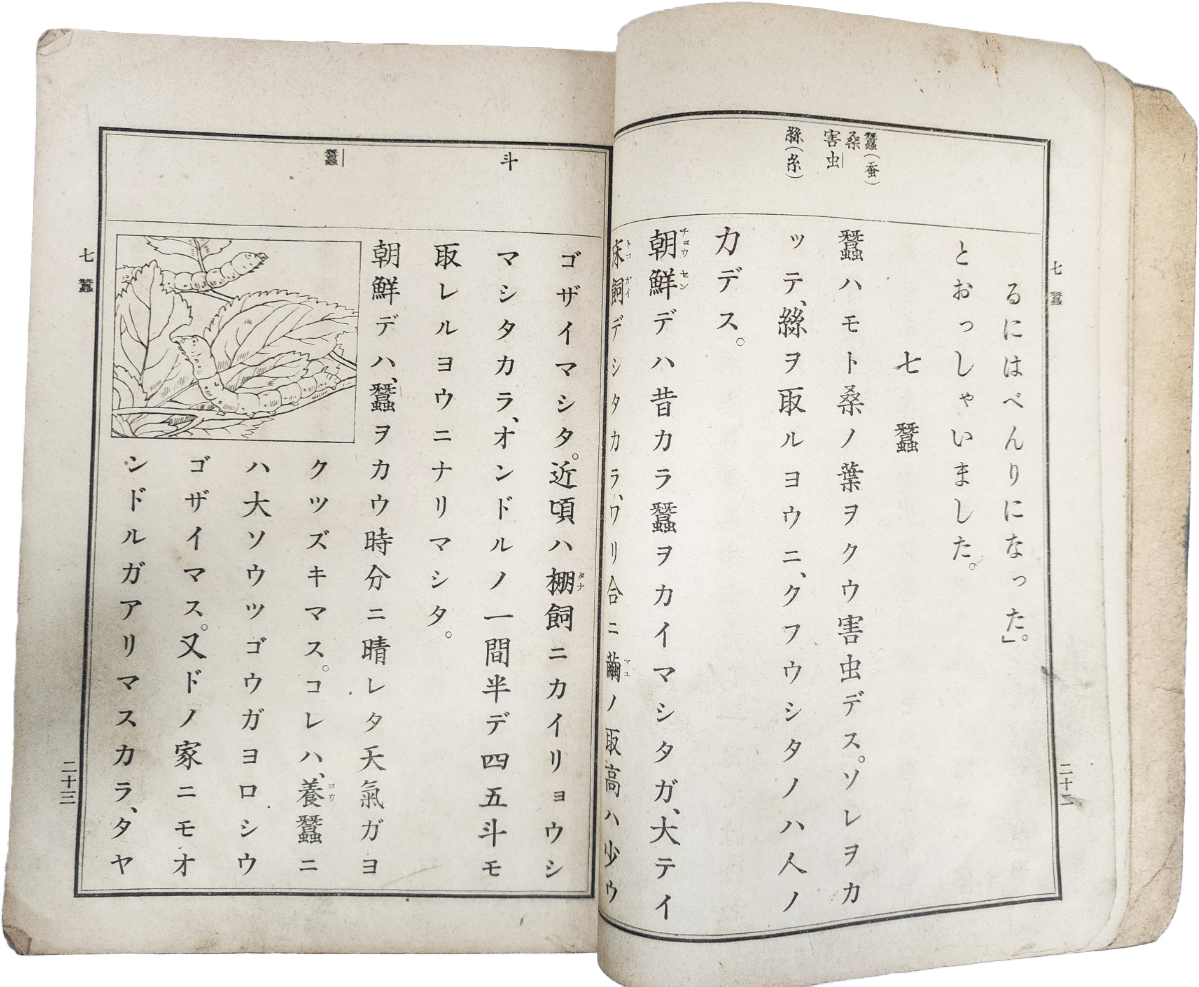 七 蠶
二十二
蠶(蚕)
桑
害虫
絲(糸)
るにはべんりになった。」
とおっしゃいました。
七 蠶
蠶ハモト桑ノ葉ヲクウ害虫デス。ソレヲカ
ッテ、絲ヲ取ルヨウニ、クフウシタノハ人ノ
力デス。
チョウセン
朝鮮デハ昔カラ蠶ヲカイマシタガ、大テイ
トコガイ
マユ
床飼デシタカラ、ワリ合ニ繭ノ取高ハ少ウ
斗
蠶
タナ
ゴザイマシタ。近頃ハ棚飼ニカイリョウシ
マシタカラ、オンドルノ一間半デ四五斗モ
取レルヨウニナリマシタ。
朝鮮デハ、蠶ヲカウ時分ニ晴レタ天氣ガヨ
ヨウ
クツズキマス。コレハ、養蠶ニ
ハ大ソウツゴウガヨロシウ
ゴザイマス。又ドノ家ニモオ
ンドルガアリマスカラ、タヤ
七 蠶
二十三